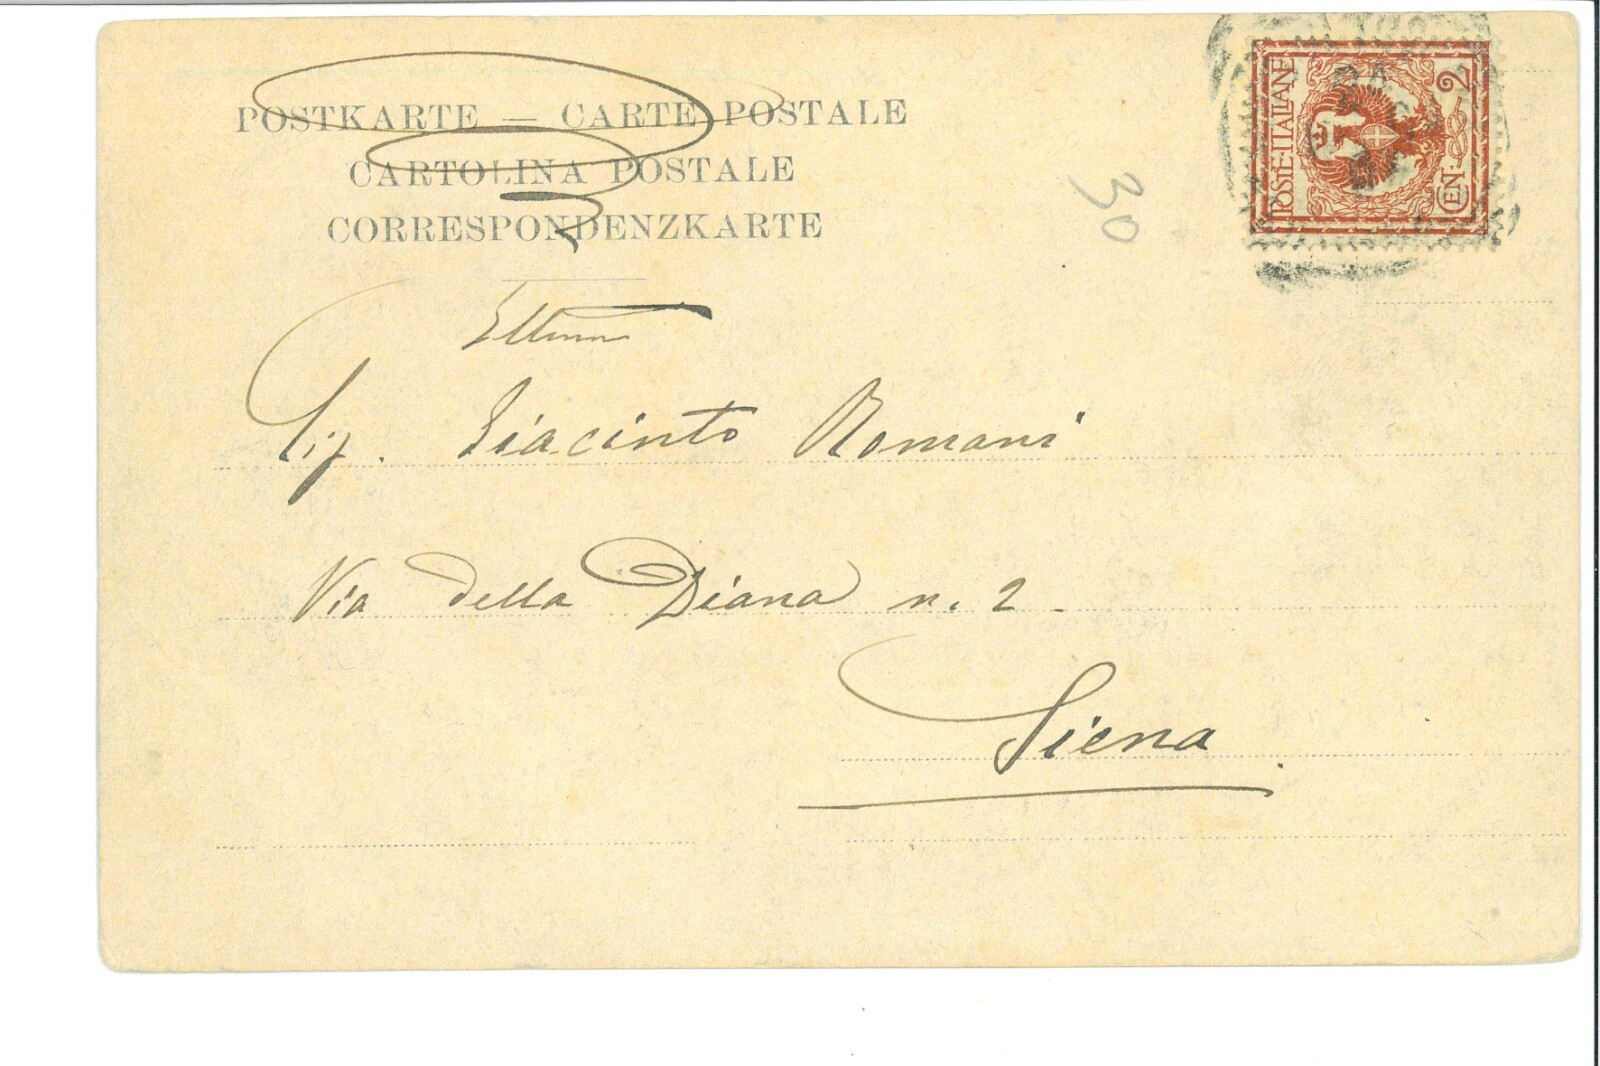 POSTKARTE — CARTE POSTALE
CARTOLINA POSTALE
CORRESPONDENZKARTE
POSTE·ITALIANE
CEN. 2
30
Sig. Giacinto Romani
Via della Diana n. 2
Siena